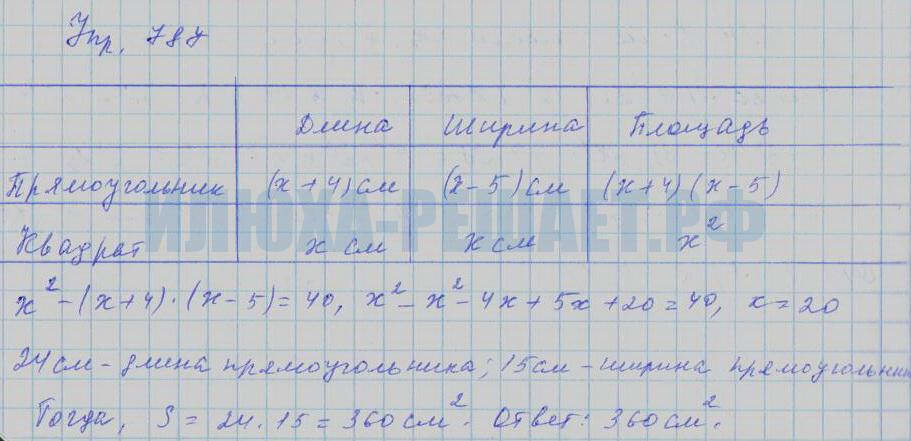 Упр. 787
Длина Ширина Площадь
Прямоугольник (x+4)см (x-5)см (x+4)(x-5)
ИЛЮХА-РЕШАЕТ.РФ
Квадрат x см x см x²
x² - (x+4)·(x-5)=40, x² - x² - 4x + 5x + 20 = 40, x = 20
24см - длина прямоугольника; 15см - ширина прямоугольник
Тогда, S = 24·15 = 360 см². Ответ: 360 см².